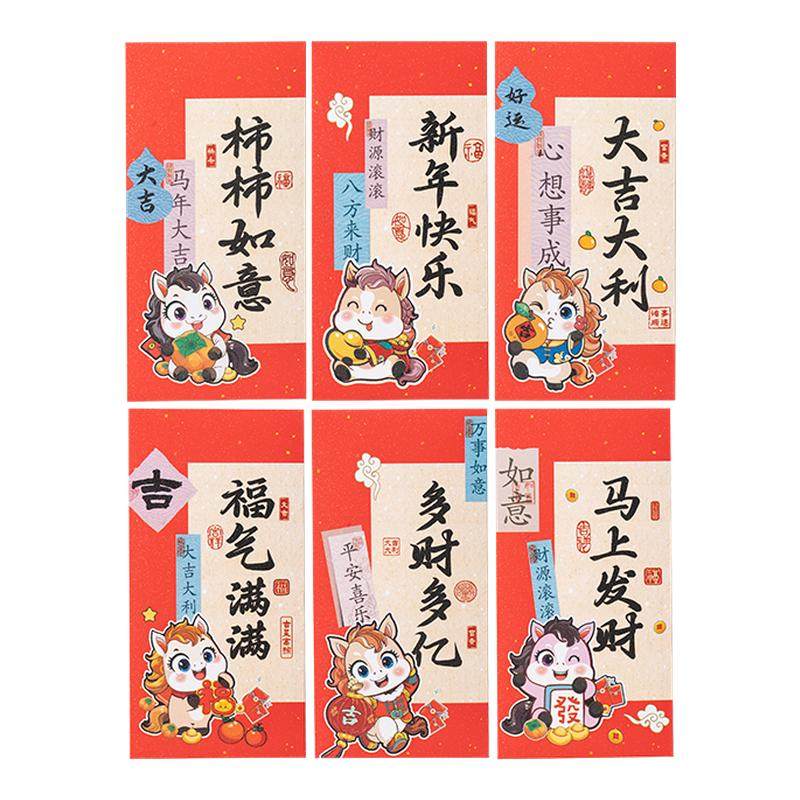 大吉
马年大吉
柿柿如意
福
财源滚滚
八方来财
新年快乐
福
好运
心想事成
大吉大利
吉
大吉大利
福气满满
福
万事如意
平安喜乐
多财多亿
吉
如意
财源滚滚
马上发财
發